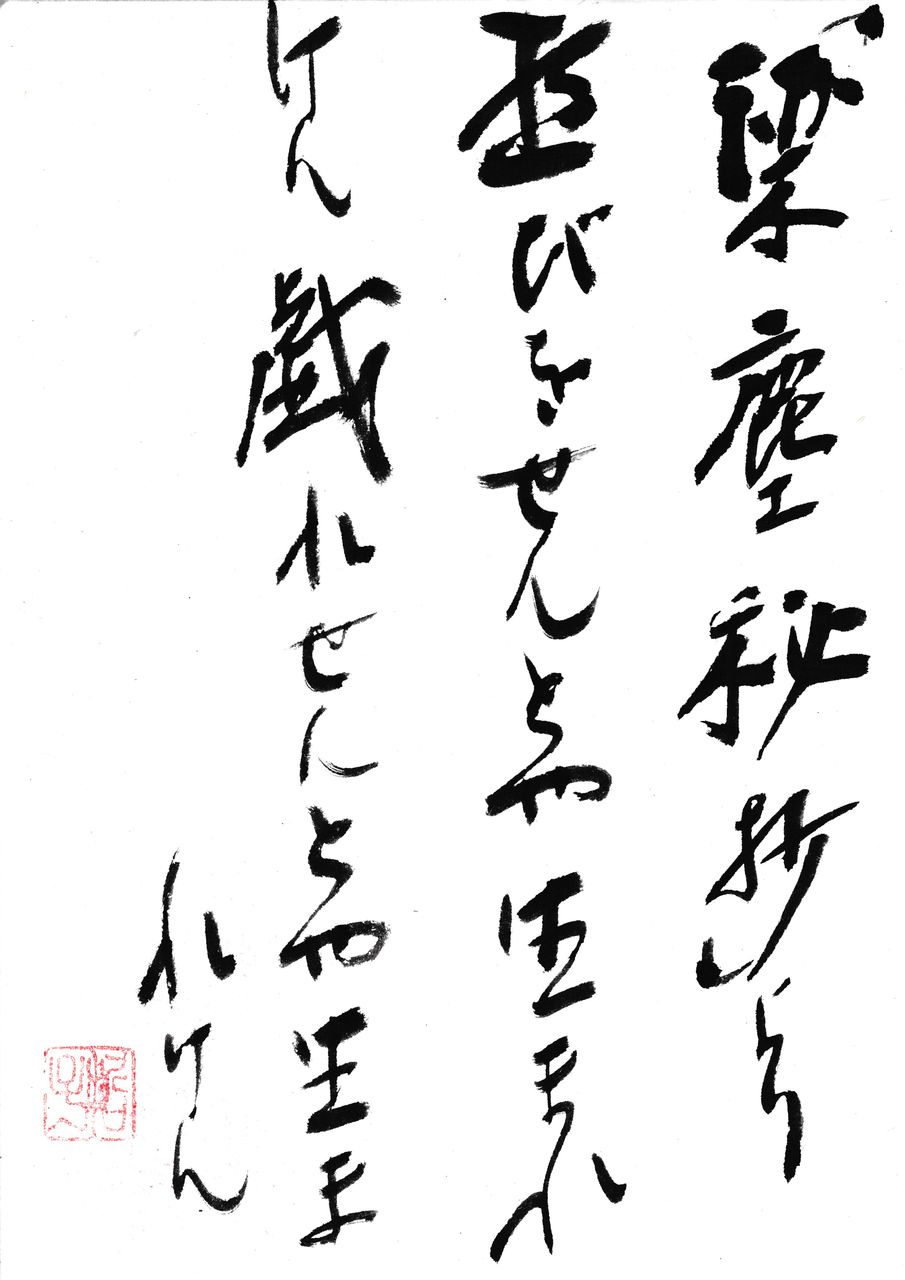 梁塵秘抄より
遊びをせんとや生まれ
けん戯れせんとや生ま
れけん